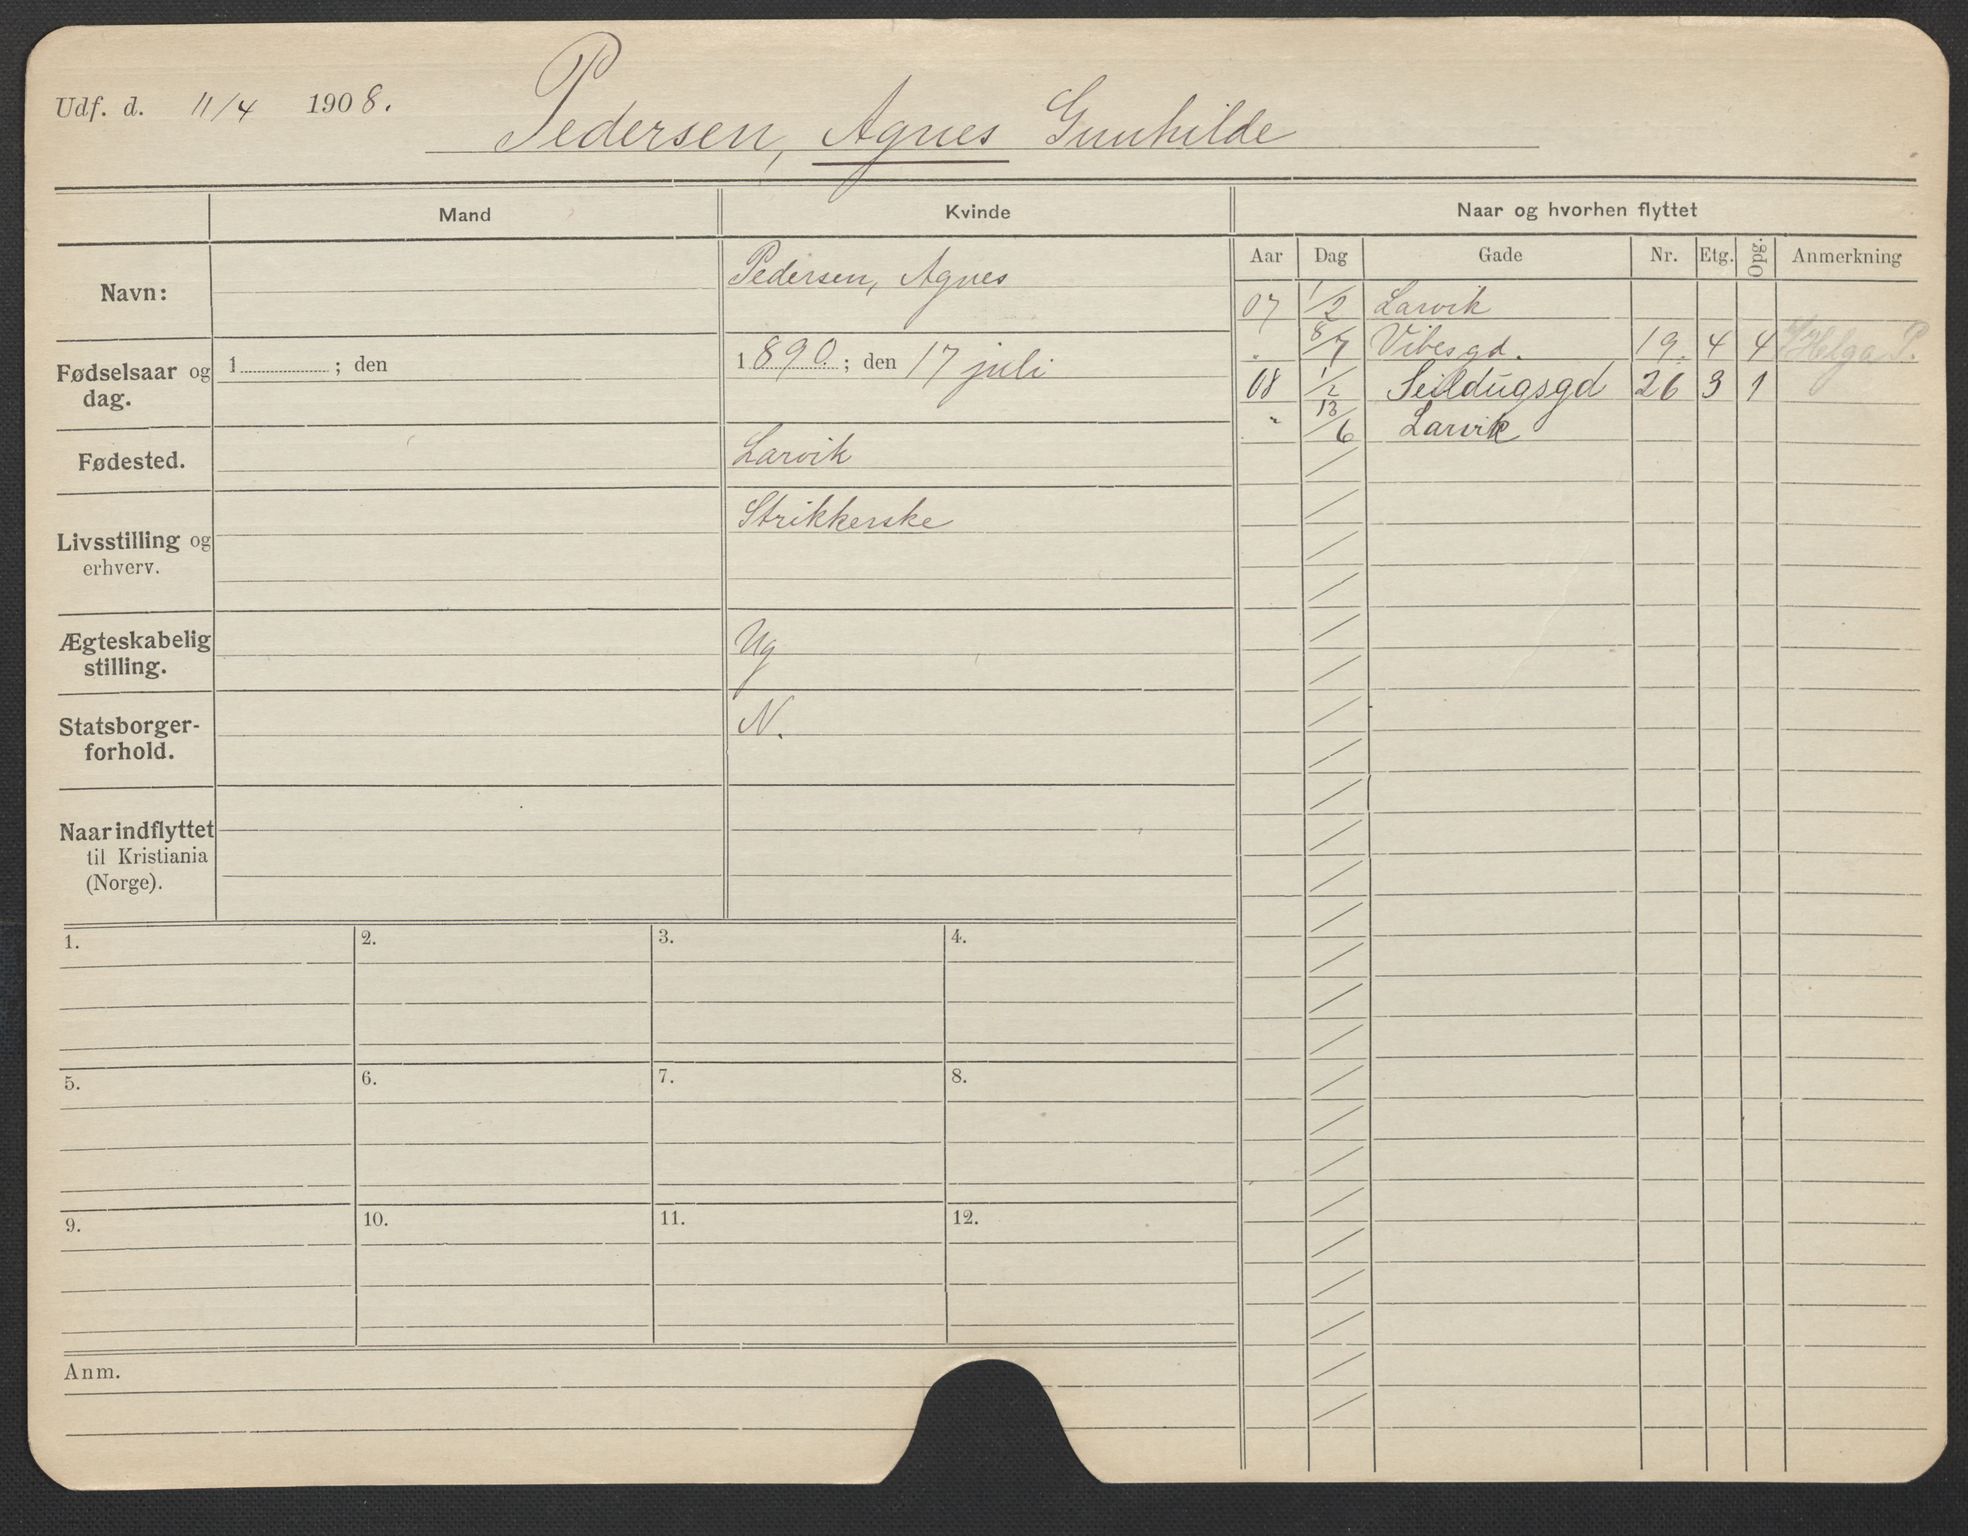 Udf. d. 11/4 1908.
Pedersen, Agnes Gunhilde
Mand
Kvinde
Naar og hvorhen flyttet
Navn:
Pedersen, Agnes
Fødselsaar og dag.
1 ; den
1890 ; den 17 juli
Fødested.
Larvik
Livsstilling og erhverv.
Strikkerske
Ægteskabelig stilling.
Ug
Statsborgerforhold.
N.
Naar indflyttet til Kristiania (Norge).
Aar Dag Gade Nr. Etg. Opg. Anmerkning
07 1/2 Larvik
. 8/7 Vibesgd. 19. 4 4 Helga P.
08 1/2 Seildugsgd 26 3 1
" 13/6 Larvik
1.
2.
3.
4.
5.
6.
7.
8.
9.
10.
11.
12.
Anm.